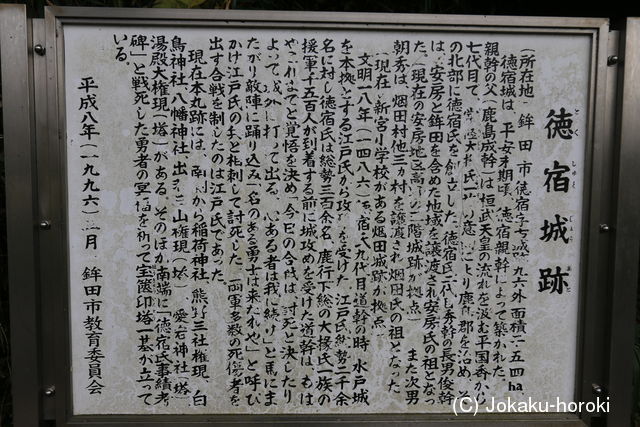 徳宿城跡
とくしゅくじょうあと
(所在地 鉾田市徳宿字古城 九六外 面積 五四ha
徳宿城は、平安末期頃、徳宿親幹によって築かれた。
親幹の父(鹿島成幹)は桓武天皇の流れを汲む平国香から
七代目で、常陸大掾氏一族の意により鹿島郡を治め、
の北部に徳宿氏を創立した。徳宿氏二代し秀幹の長男俊幹
は、安房と鉾田を含めた地域を譲渡され安房氏の祖となっ
た(現在の安房地区の三階城跡が拠点)また次男
朝秀は、烟田村他三ヵ村を譲渡され烟田氏の祖となった
(現在 新宮小学校がある烟田城跡が拠点
文明一八(一四八六)徳宿氏九代目道幹の時、水戸城
を本拠とする江戸氏から攻めを受けた。江戸氏総勢二千余
名に対し徳宿氏は総勢三百余名、鹿行下総の大掾氏一族の
援軍千五百人が到着する前に城攻めを受けた道幹は、もは
やこれまでと覚悟を決め、今日の合戦は、討死と決したり
よって城外に打って出る。心ある者は我に続けと馬にま
たがり敵陣に踊り込み「名のある勇士は来たれや」と呼び
かけ江戸氏の兵と相刺して討死した。両軍多数の死傷者を
出す合戦を制したのは江戸氏であった。
現在本丸跡には、南側から稲荷神社、熊野三社権現、白
鳥神社、八幡神社、出羽三山権現(塔)、愛宕神社(塔)
湯殿大権現(塔)がある。そのほか南端に「徳宿氏事績考
碑」と戦死した勇者の冥福を祈って宝篋印塔一基が立って
いる。
平成八年(一九九六)三月 鉾田市教育委員会
(C) Jokaku-horoki